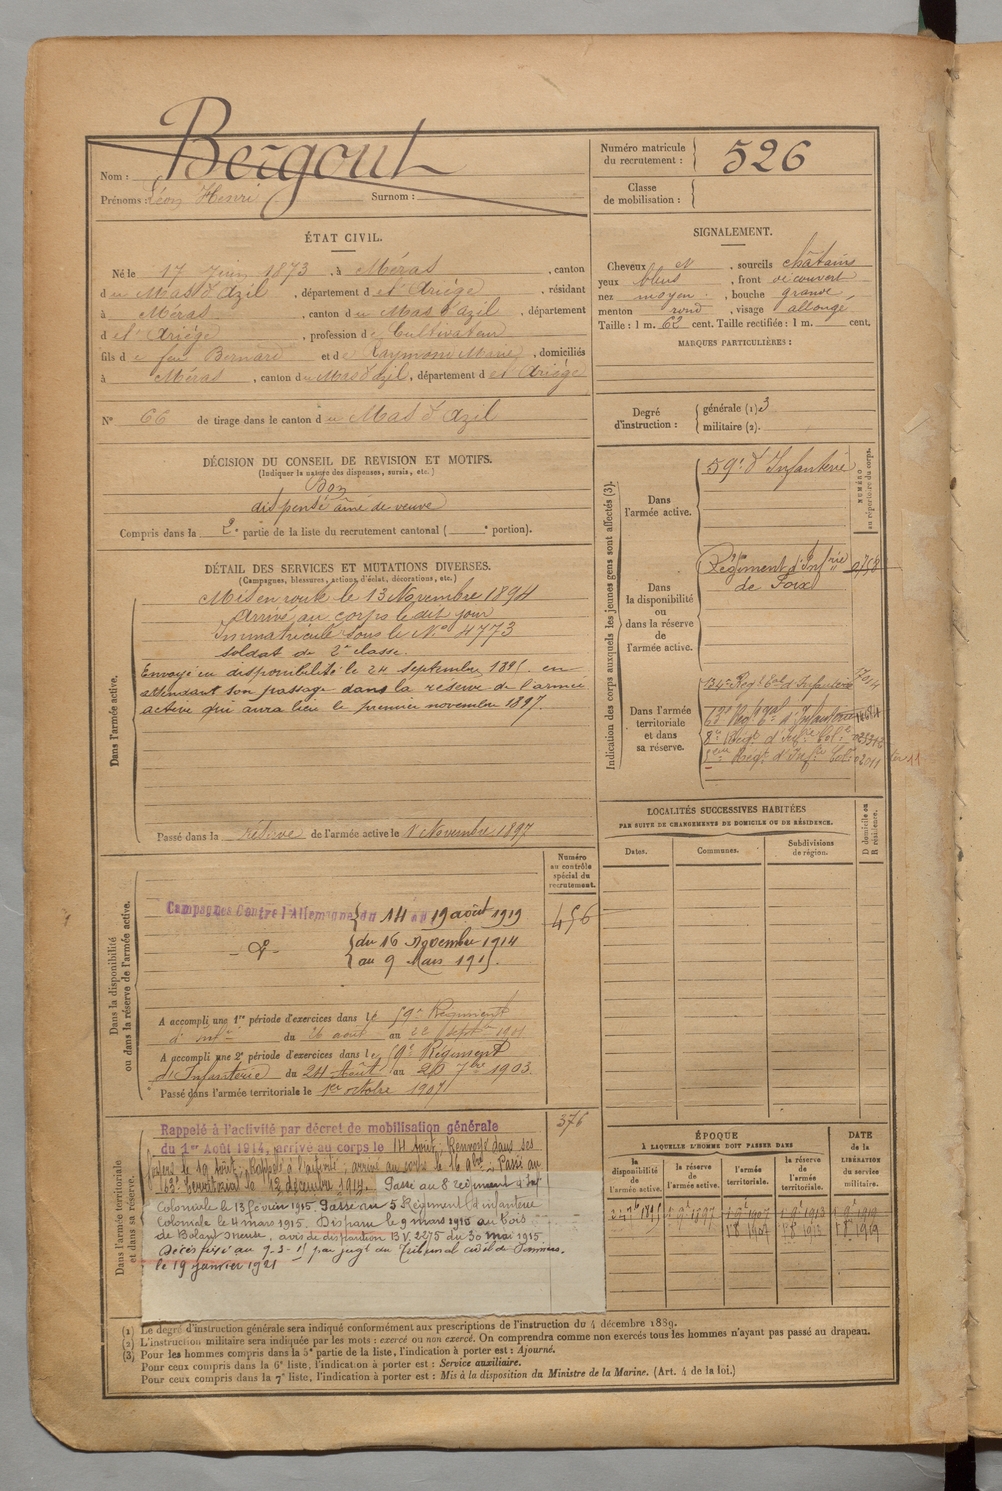 Nom : Bergout
Prénoms : Léon Henri Surnom :
Numéro matricule du recrutement : 526
Classe de mobilisation :
ÉTAT CIVIL.
Né le 17 Juin 1873, à Méras, canton
du Mas d'Azil, département de l'Ariège, résidant
à Méras, canton du Mas d'Azil, département
de l'Ariège, profession de Cultivateur
fils de feu Bernard et de Raymond Marie, domiciliés
à Méras, canton du Mas d'Azil, département de l'Ariège
N° 66 de tirage dans le canton du Mas d'Azil
DÉCISION DU CONSEIL DE REVISION ET MOTIFS.
(Indiquer la nature des dispenses, sursis, etc.)
Bon
dispensé aîné de veuve
Compris dans la 2e partie de la liste du recrutement cantonal ( e portion).
SIGNALEMENT.
Cheveux et, sourcils châtains
yeux bleus, front découvert
nez moyen, bouche grande
menton rond, visage allongé
Taille : 1 m. 62 cent. Taille rectifiée : 1 m. cent.
MARQUES PARTICULIÈRES :
Degré d'instruction : générale (1) 3
militaire (2).
DÉTAIL DES SERVICES ET MUTATIONS DIVERSES.
(Campagnes, blessures, actions d'éclat, décorations, etc.)
Dans l'armée active.
Mis en route le 13 Novembre 1894
Arrivé au corps le dit jour
Immatriculé sous le No 4773
soldat de 2e classe.
Envoyé en disponibilité le 24 septembre 1895. en
attendant son passage dans la réserve de l'armée
active qui aura lieu le premier novembre 1897.
Passé dans la réserve de l'armée active le 1 Novembre 1897
Indication des corps auxquels les jeunes gens sont affectés (3).
NUMÉRO au répertoire du corps.
Dans l'armée active.
59e d'Infanterie
Dans la disponibilité ou dans la réserve de l'armée active.
Régiment d'Infrie
de Foix
Dans l'armée territoriale et dans sa réserve.
134e Regt Tal d'Infanterie
63e Regt Tal d'Infanterie
2e Regt d'Infre Cole
5eme Regt d'Infre Cole
LOCALITÉS SUCCESSIVES HABITÉES
PAR SUITE DE CHANGEMENTS DE DOMICILE OU DE RÉSIDENCE.
Dates. Communes. Subdivisions de région. D domicile ou R résidence.
Dans la disponibilité ou dans la réserve de l'armée active.
Numéro au contrôle spécial du recrutement.
Campagnes Contre l'Allemagne du 14 au 19 août 1919
456
- do - du 16 Novembre 1914
au 9 Mars 1915.
A accompli une 1re période d'exercices dans le 59e Régiment
d'infie du 26 août au 22 septbre 1901
A accompli une 2e période d'exercices dans le 59e Régiment
d'Infanterie du 24 Août au 20 7bre 1903
Passé dans l'armée territoriale le 1er octobre 1907
Dans l'armée territoriale et dans sa réserve.
376
Rappelé à l'activité par décret de mobilisation générale
du 1er Août 1914, arrivé au corps le 14 Aout. Renvoyé dans ses
foyers le 19 Aout. Rappelé à l'activité; arrivé au corps le 16 9bre. Passé au
63e Territorial le 12 décembre 1914. Passé au 8 régiment d'Inf
Coloniale le 13 février 1915. Passé au 5 Régiment d'infanterie
Coloniale le 4 mars 1915. Disparu le 9 mars 1915 au bois
de Bolant Meuse, avis de disparition BV 2275 du 30 mai 1915.
Décès fixé au 9-3-15 par jugt du Tribunal civil de Pamiers.
le 19 janvier 1921
ÉPOQUE
À LAQUELLE L'HOMME DOIT PASSER DANS
la disponibilité de l'armée active. la réserve de l'armée active. l'armée territoriale. la réserve de l'armée territoriale.
DATE de la LIBÉRATION du service militaire.
24 7bre 1895 1 9e 1897 1 9e 1907 1 9e 1913 1 9e 1919
1 8 1907 1 8 1913 1 8 1919
(1) Le degré d'instruction générale sera indiqué conformément aux prescriptions de l'instruction du 4 décembre 1889.
(2) L'instruction militaire sera indiquée par les mots : exercé ou non exercé. On comprendra comme non exercés tous les hommes n'ayant pas passé au drapeau.
(3) Pour les hommes compris dans la 5e partie de la liste, l'indication à porter est : Ajourné.
Pour ceux compris dans la 6e liste, l'indication à porter est : Service auxiliaire.
Pour ceux compris dans la 7e liste, l'indication à porter est : Mis à la disposition du Ministre de la Marine. (Art. 4 de la loi.)